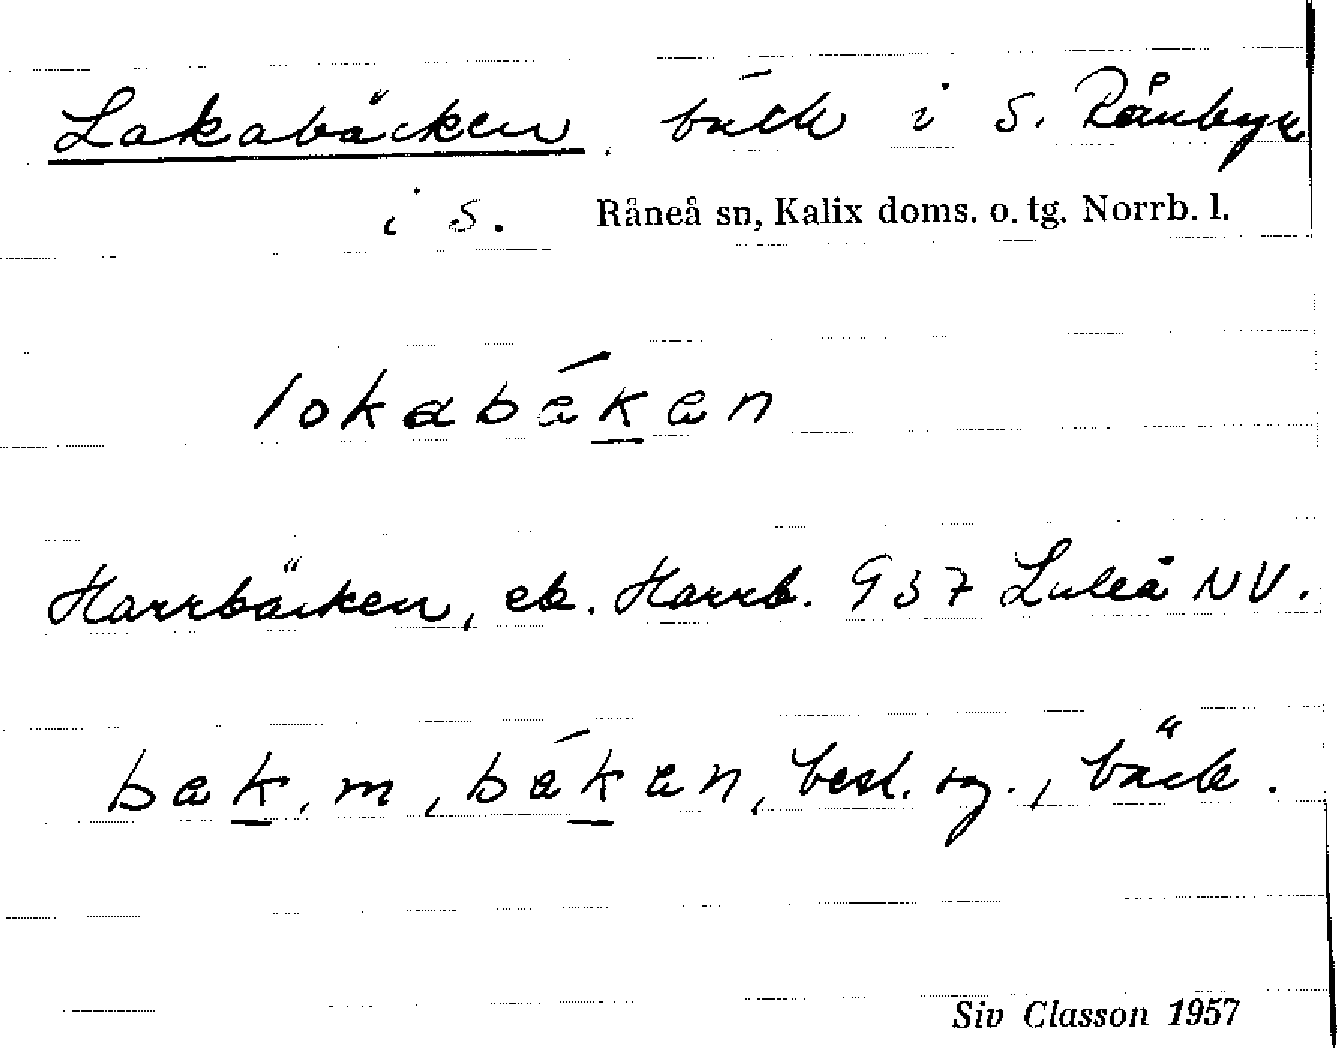 Lakabäcken, bäck i S. Rånbyn
i S. Råneå sn, Kalix doms. o. tg. Norrb. l.
lokabákan
Harrbäcken, ek. Harrb. 937 Luleå NV.
bak, m, bákan, best. sg., bäck.
Siv Classon 1957